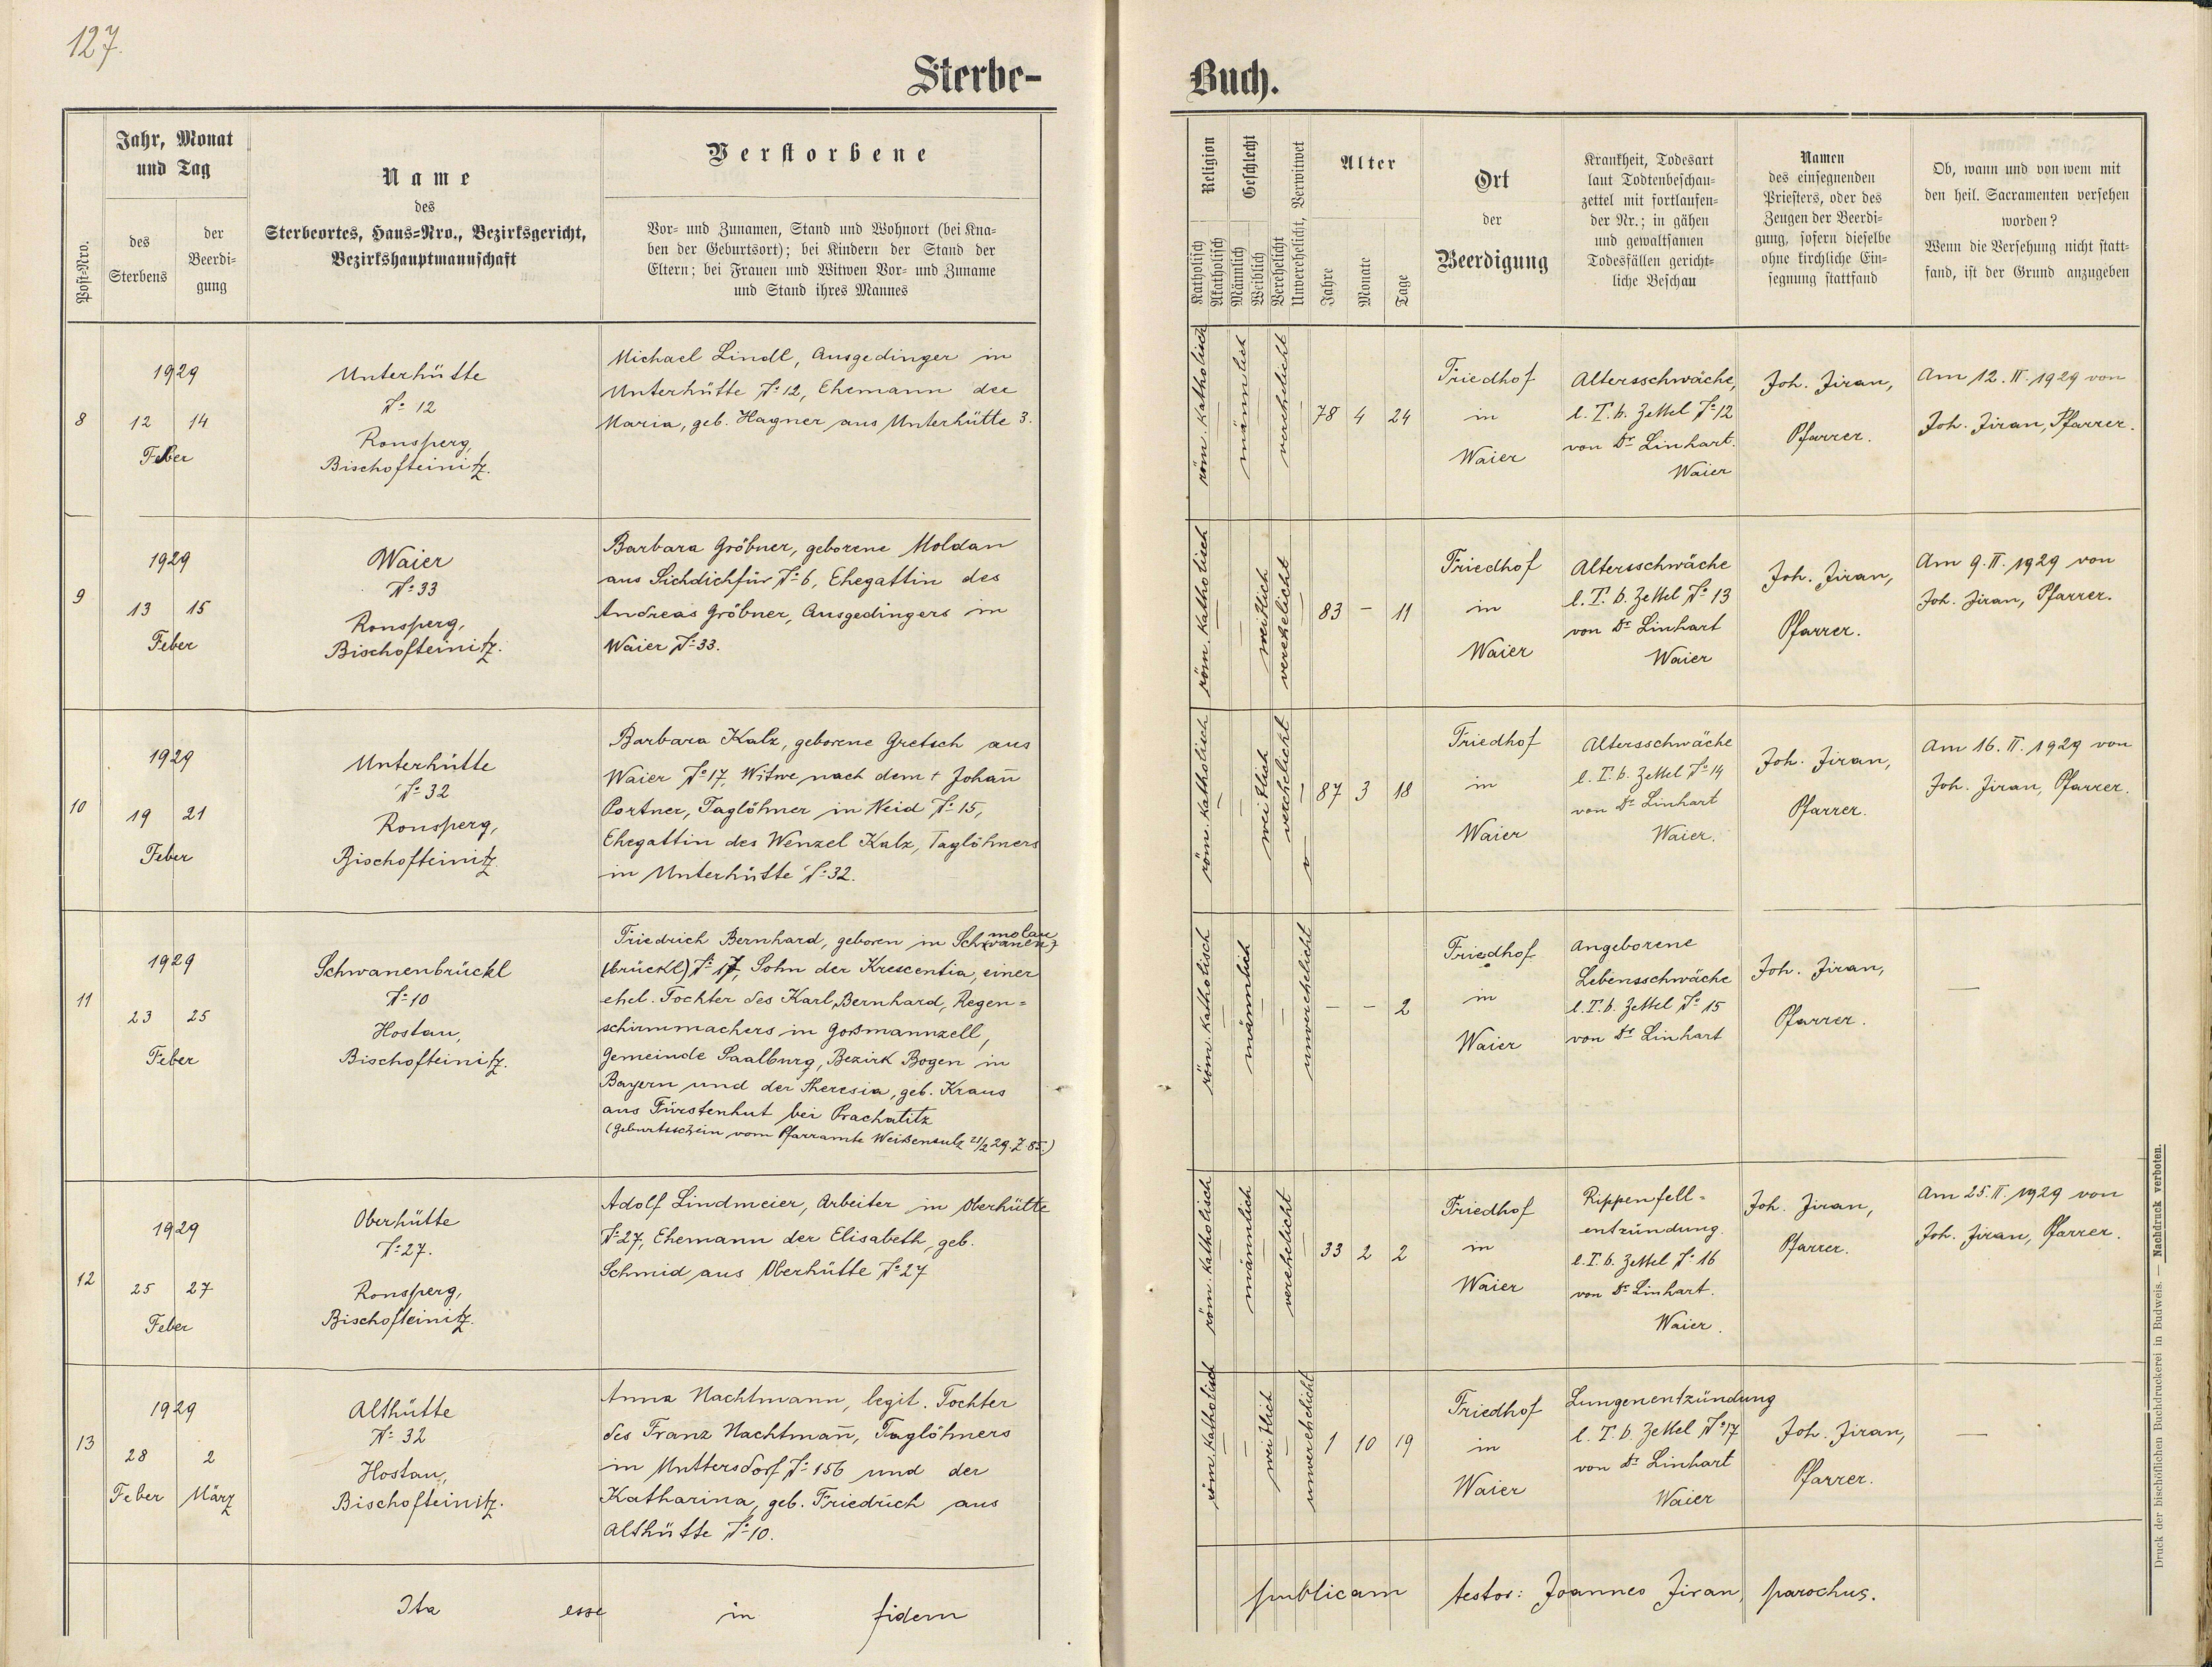 127.
Sterbe-
Buch.
Post-Nro.
Jahr, Monat
und Tag
des
Sterbens
der
Beerdi-
gung
Name
des
Sterbeortes, Haus-Nro., Bezirksgericht,
Bezirkshauptmannschaft
Verstorbene
Vor- und Zunamen, Stand und Wohnort (bei Kna-
ben der Geburtsort); bei Kindern der Stand der
Eltern; bei Frauen und Witwen Vor- und Zuname
und Stand ihres Mannes
Religion
Katholisch
Akatholisch
Geschlecht
Männlich
Weiblich
Verehelicht
Unverehelicht, Verwitwet
Alter
Jahre
Monate
Tage
Ort
der
Beerdigung
Krankheit, Todesart
laut Todtenbeschau-
zettel mit fortlaufen-
der Nr.; in gähen
und gewaltsamen
Todesfällen gericht-
liche Beschau
Namen
des einsegnenden
Priesters, oder des
Zeugen der Beerdi-
gung, sofern dieselbe
ohne kirchliche Ein-
segnung stattfand
Ob, wann und von wem mit
den heil. Sacramenten versehen
worden?
Wenn die Versehung nicht statt-
fand, ist der Grund anzugeben
8
1929
12 14
Feber
Unterhütte
№ 12
Ronsperg,
Bischofteinitz.
Michael Lindl, Ausgedinger in
Unterhütte № 12, Ehemann der
Maria, geb. Hagner aus Unterhütte 3.
röm. katholisch
männlich
verehelicht
78 4 24
Friedhof
in
Waier
Altersschwäche,
l. T. b. Zettel № 12
von Dr Linhart.
Waier
Joh. Jiran,
Pfarrer.
Am 12. II. 1929 von
Joh. Jiran, Pfarrer.
9
1929
13 15
Feber
Waier
№ 33
Ronsperg,
Bischofteinitz.
Barbara Gröbner, geborene Moldan
aus Sichdichfür № 6, Ehegattin des
Andreas Gröbner, Ausgedingers in
Waier № 33.
röm. katholisch
weiblich
verehelicht
83 – 11
Friedhof
in
Waier
Altersschwäche
l. T. b. Zettel № 13
von Dr Linhart
Waier
Joh. Jiran,
Pfarrer.
Am 9. II. 1929 von
Joh. Jiran, Pfarrer.
10
1929
19 21
Feber
Unterhütte
№ 32
Ronsperg,
Bischofteinitz
Barbara Kalz, geborene Gretsch aus
Waier № 17, Witwe nach dem † Johan̄
Portner, Taglöhner in Neid № 15,
Ehegattin des Wenzel Kalz, Taglöhners
in Unterhütte № 32.
röm. katholisch
weiblich
verehelicht
87 3 18
Friedhof
in
Waier
Altersschwäche
l. T. b. Zettel № 14
von Dr Linhart
Waier.
Joh. Jiran,
Pfarrer.
Am 16. II. 1929 von
Joh. Jiran, Pfarrer.
11
1929
23 25
Feber
Schwanenbrückl
№ 10
Hostau,
Bischofteinitz.
Friedrich Bernhard, geboren in Sch(wanen)molau
(brückl) № 17, Sohn der Krescentia, einer
ehel. Tochter des Karl Bernhard, Regen=
schirmmachers in Goßmannzell,
Gemeinde Saalburg, Bezirk Bogen in
Bayern und der Theresia, geb. Kraus
aus Fürstenhut bei Prachatitz
(Geburtsschein vom Pfarramte Weißensulz 21/2 29. Z 85.)
röm. katholisch
männlich
unverehelicht
– – 2
Friedhof
in
Waier
Angeborene
Lebensschwäche
l. T. b. Zettel № 15
von Dr Linhart
Joh. Jiran,
Pfarrer.
—
12
1929
25 27
Feber
Oberhütte
№ 27.
Ronsperg,
Bischofteinitz.
Adolf Lindmeier, Arbeiter in Oberhütte
№ 27, Ehemann der Elisabeth, geb.
Schmid aus Oberhütte № 27
röm. katholisch
männlich
verehelicht
33 2 2
Friedhof
in
Waier
Rippenfell=
entzündung
l. T. b. Zettel № 16
von Dr Linhart.
Waier.
Joh. Jiran,
Pfarrer.
Am 25. II. 1929 von
Joh. Jiran, Pfarrer.
13
1929
28 2
Feber März
Althütte
№ 32
Hostau,
Bischofteinitz.
Anna Nachtmann, legit. Tochter
des Franz Nachtman̄, Taglöhners
in Muttersdorf № 156 und der
Katharina, geb. Friedrich aus
Althütte № 10.
röm. katholisch
weiblich
unverehelicht
1 10 19
Friedhof
in
Waier
Lungenentzündung
l. T. b. Zettel № 17
von Dr Linhart
Waier
Joh. Jiran,
Pfarrer.
—
Ita esse in fidem publicam testor: Joannes Jiran, parochus.
Druck der bischöflichen Buchdruckerei in Budweis. — Nachdruck verboten.